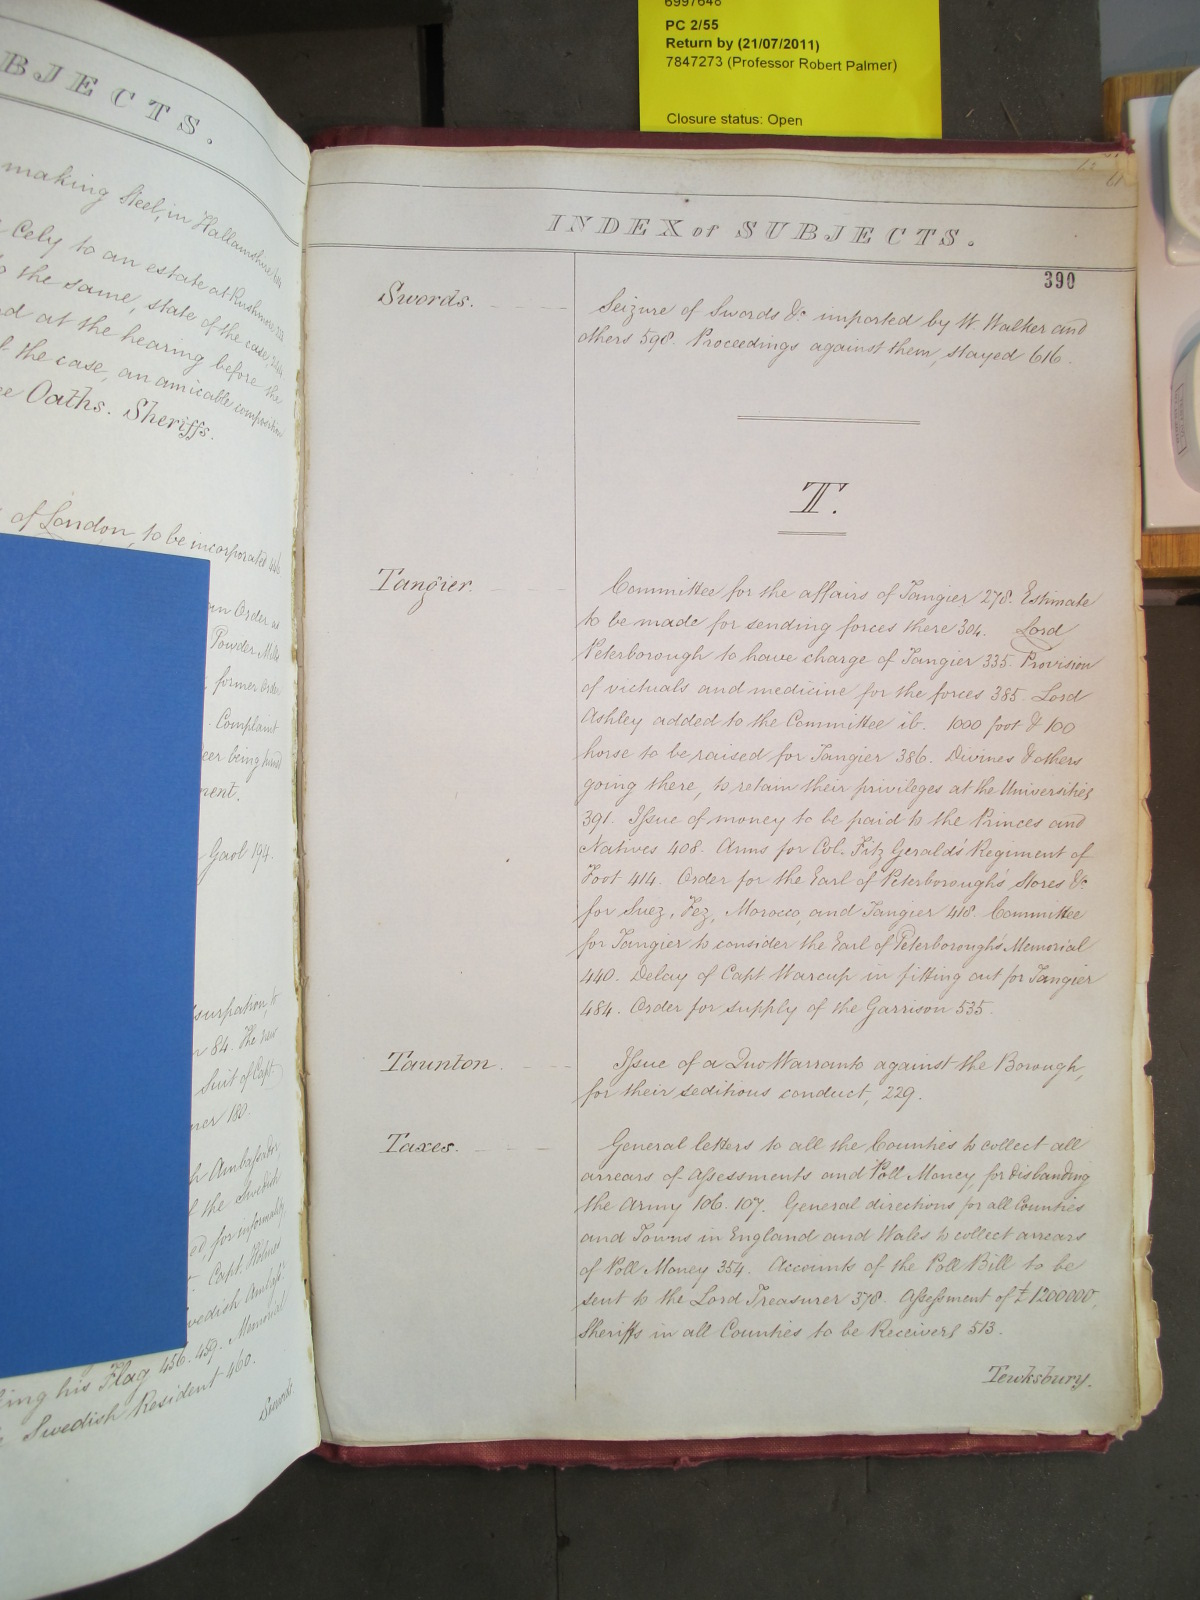 6997646
PC 2/55
Return by (21/07/2011)
7847273 (Professor Robert Palmer)
Closure status: Open
BJECTS.
making Steel, in Hallamshire
Cely to an estate at Rushmere
to the same, state of the case
at the hearing before the
the case, an amicable composition
Oaths. Sheriffs.
of London, to be incorporated
an Order as
Powder Mills
former Order
Complaint
being
ment.
Gaol 194.
surpation, to
84. The
Suit of Capt
180.
Ambassador
the Swedish
for informality
Capt. Holmes
Swedish Ambass
his Flag 456. 459. Memorial
Swedish Resident 460.
Swords
INDEX of SUBJECTS.
390
Swords.
Seizure of Swords &c imported by W. Walker and
others 598. Proceedings against them, stayed 616.
T.
Tangier.
Committee for the affairs of Tangier 278. Estimate
to be made for sending forces there 304. Lord
Peterborough to have charge of Tangier 335. Provision
of victuals and medicine for the forces 385. Lord
Ashley added to the Committee ib. 1000 foot & 100
horse to be raised for Tangier 386. Divines & others
going there, to retain their privileges at the Universities
391. Issue of money to be paid to the Princes and
Natives 408. Arms for Col. Fitz Geralds' Regiment of
Foot 414. Order for the Earl of Peterborough's Stores &c
for Suez, Fez, Morocco, and Tangier 418. Committee
for Tangier to consider the Earl of Peterborough's Memorial
440. Delay of Capt Warcup in fitting out for Tangier
484. Order for supply of the Garrison 535.
Taunton.
Issue of a Quo Warranto against the Borough,
for their seditious conduct, 229.
Taxes.
General letters to all the Counties to collect all
arrears of Assessments and Poll Money, for disbanding
the Army 106. 107. General directions for all Counties
and Towns in England and Wales to collect arrears
of Poll Money 354. Accounts of the Poll Bill to be
sent to the Lord Treasurer 378. Assessment of £1200000,
Sheriffs in all Counties to be Receivers 513.
Tewksbury.